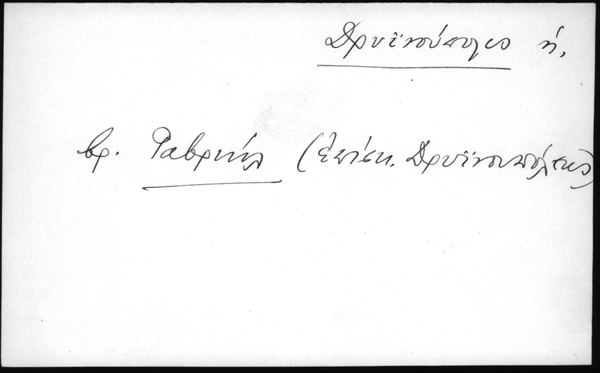 Δρυϊνούπολις ἡ,
βρ. Γαβριήλ (Ἐπίσκ. Δρυϊνουπόλεως)